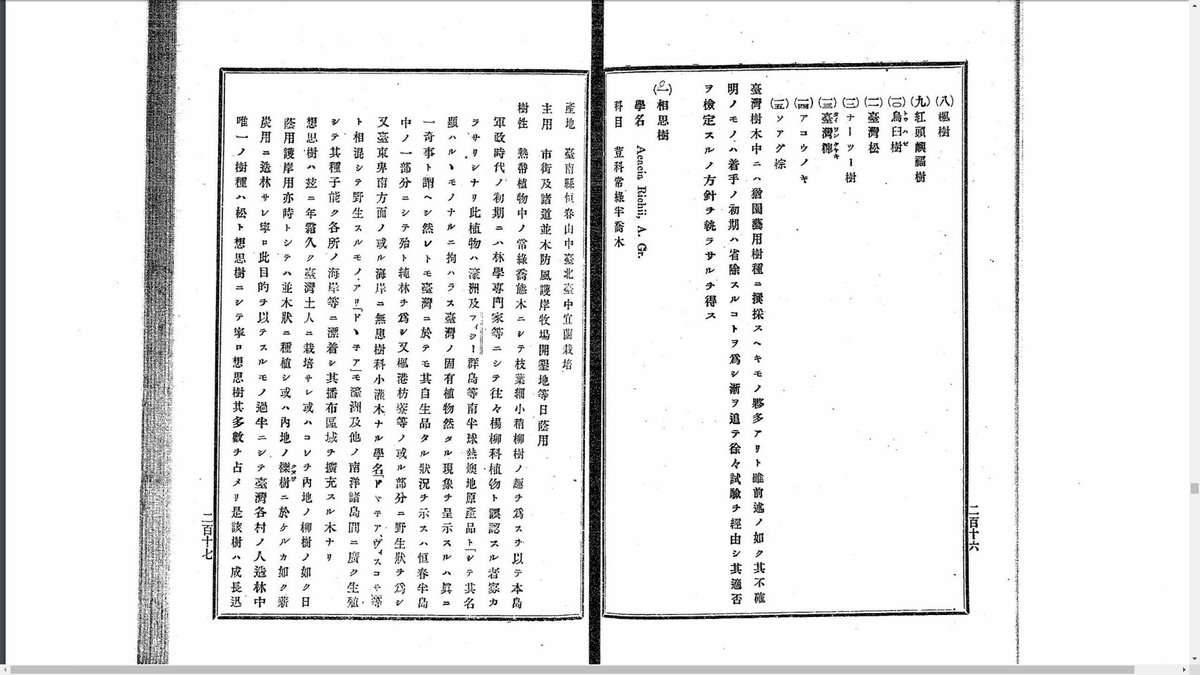 (八) 楓樹
(九) 紅頭嶼福樹
(一〇) 烏臼樹
(一一) 臺灣松
(一二) ナーツー樹
(一三) 臺灣欅
(一四) アコウノキ
(一五) ソアグ棕
臺灣樹木中ニハ猶園藝用樹種ニ撰採スヘキモノ夥多アリト雖前述ノ如ク其不確
明ノモノハ着手ノ初期ハ省除スルコトヲ爲シ漸ヲ追テ徐々試驗チ經由シ其適否
ヲ檢定スルノ方針チ執ラサルチ得ス
(一) 相思樹
學名 Acacia Richii, A. Gr.
科目 荳科常綠半喬木
產地 臺南縣恒春山中臺北臺中宜蘭栽培
主用 市街及諸道並木防風護岸牧場開墾地等日蔭用
樹性 熱帶植物中ノ常綠喬態木ニシテ枝葉細小稍柳樹ノ趣チ爲スチ以テ本島
軍政時代ノ初期ニハ林學專門家等ニシテ往々楊柳科植物ト誤認スル者寡カ
ラサリシナリ此植物ハ濠洲及フィジー群島等南半球熱燠地原產品トシテ其名
顯ハルヽモノナルニ拘ハラス臺灣ノ固有植物然タル現象チ呈示スルハ眞ニ
一奇事ト謂ヘシ然レトモ臺灣ニ於テモ其自生品タル狀況チ示スハ恒春半島
中ノ一部分ニシテ殆ト純林チ爲シ又楓港枋寮等ノ或ル部分ニ野生狀チ爲シ
又臺東卑南方面ノ或ル海岸ニ無患樹科小灌木ナル學名「ドマテア、ヴィスコサ」等
ト相混シテ野生スルモノアリ「ドヽチア」モ濠洲及他ノ南洋諸島間ニ廣ク生殖
シテ其種子能ク各所ノ海岸等ニ漂着シ其播布區域チ擴充スル木ナリ
想思樹ハ玆ニ年霜久ク臺灣土人ニ栽培サレ或ハコレチ內地ノ柳樹ノ如ク日
蔭用護岸用亦時トシテハ並木狀ニ種植シ或ハ內地ノ櫟樹ニ於ケルカ如ク薪
炭用ニ造林サレ寧ロ此目的ヲ以テスルモノ過半ニシテ臺灣各村ノ人造林中
唯一ノ樹種ハ松ト想思樹ニシテ寧ロ想思樹其多數チ占メリ是該樹ハ成長迅
二百十六
二百十七